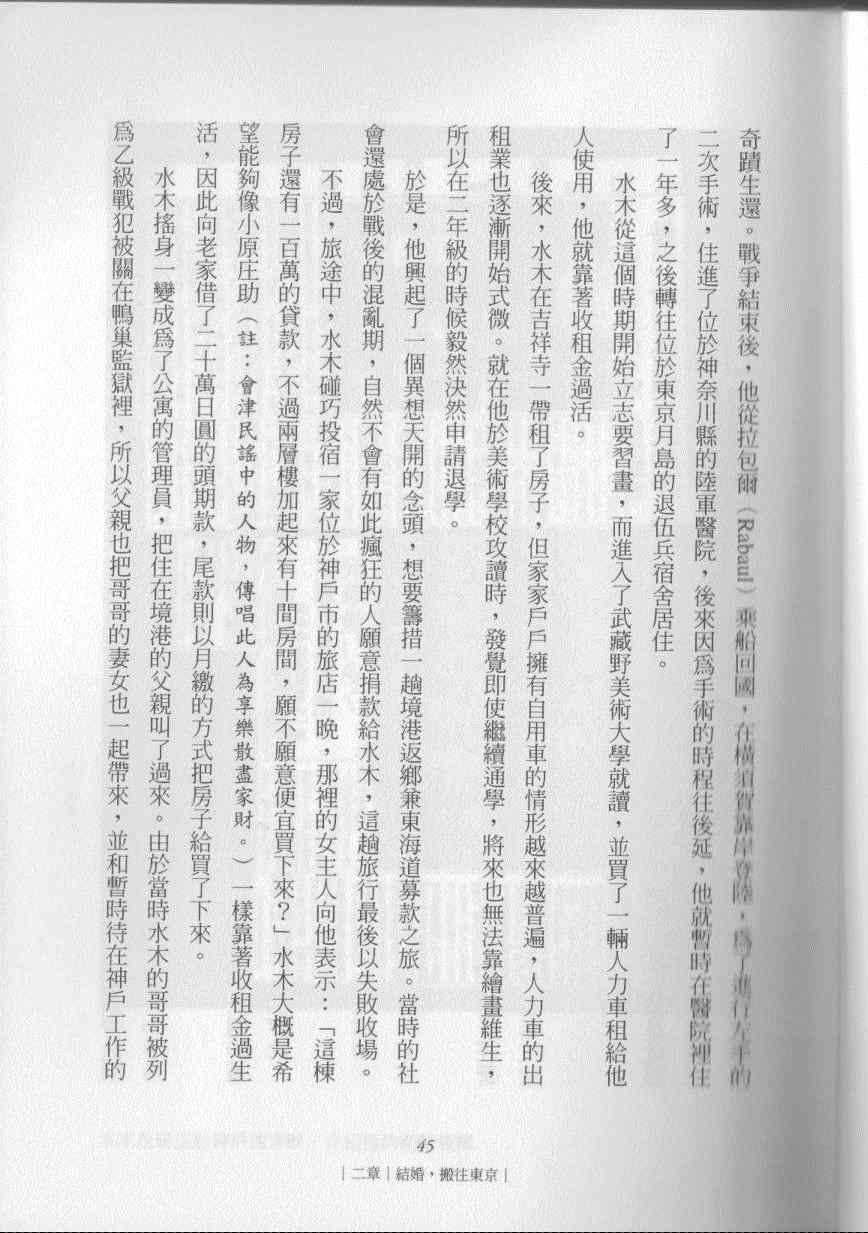 奇蹟生還。戰爭結束後，他從拉包爾（Rabaul）乘船回國，在橫須賀靠岸登陸，為了進行左手的
二次手術，住進了位於神奈川縣的陸軍醫院，後來因為手術的時程往後延，他就暫時在醫院裡住
了一年多，之後轉往位於東京月島的退伍兵宿舍居住。
水木從這個時期開始立志要習畫，而進入了武藏野美術大學就讀，並買了一輛人力車租給他
人使用，他就靠著收租金過活。
後來，水木在吉祥寺一帶租了房子，但家家戶戶擁有自用車的情形越來越普遍，人力車的出
租業也逐漸開始式微。就在他於美術學校攻讀時，發覺即使繼續通學，將來也無法靠繪畫維生，
所以在二年級的時候毅然決然申請退學。
於是，他興起了一個異想天開的念頭，想要籌措一趟境港返鄉兼東海道募款之旅。當時的社
會還處於戰後的混亂期，自然不會有如此瘋狂的人願意捐款給水木，這趟旅行最後以失敗收場。
不過，旅途中，水木碰巧投宿一家位於神戶市的旅店一晚，那裡的女主人向他表示：「這棟
房子還有一百萬的貸款，不過兩層樓加起來有十間房間，願不願意便宜買下來？」水木大概是希
望能夠像小原庄助（註：會津民謠中的人物，傳唱此人為享樂散盡家財。）一樣靠著收租金過生
活，因此向老家借了二十萬日圓的頭期款，尾款則以月繳的方式把房子給買了下來。
水木搖身一變成為了公寓的管理員，把住在境港的父親叫了過來。由於當時水木的哥哥被列
為乙級戰犯被關在鴨巢監獄裡，所以父親也把哥哥的妻女也一起帶來，並和暫時待在神戶工作的
45
|二章|結婚，搬往東京|